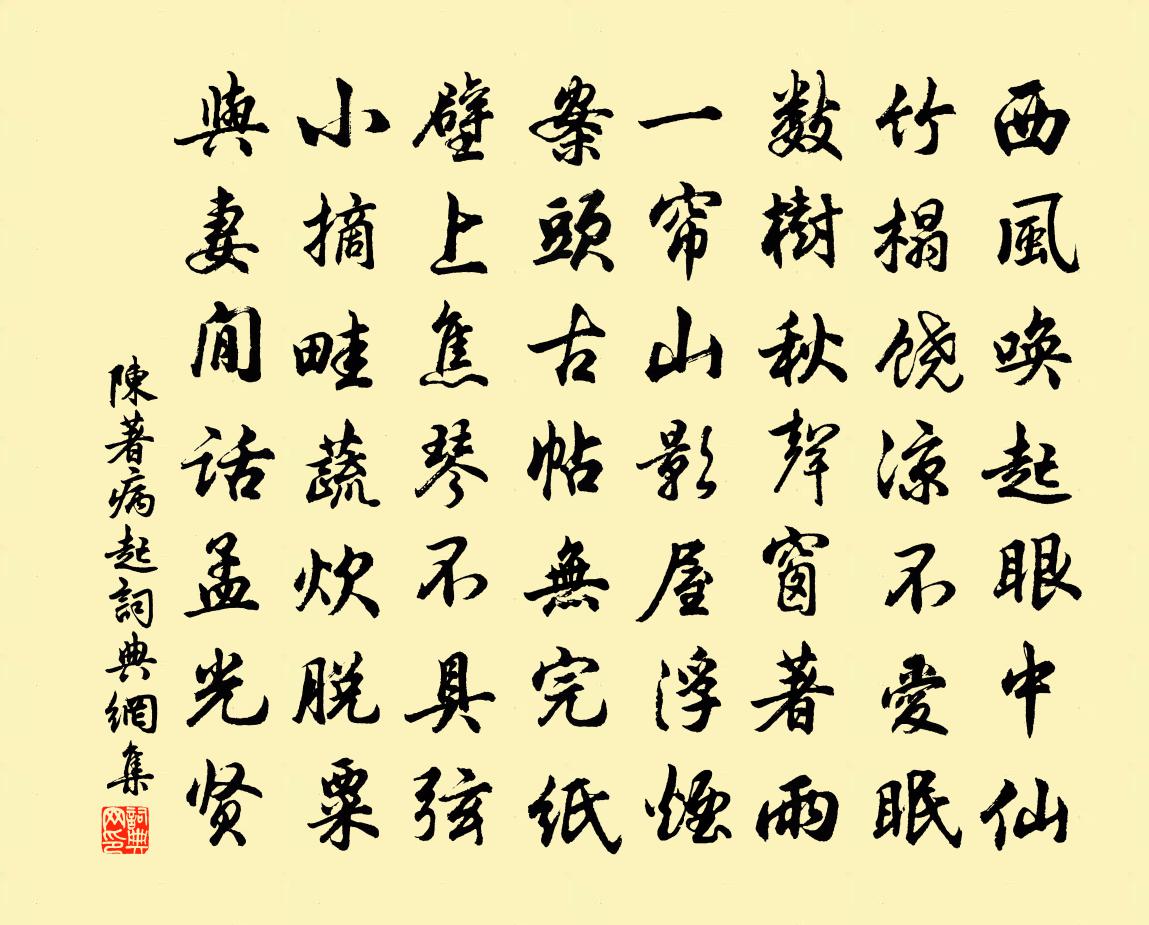 西風唤起眼中仙
竹榻饶涼不愛眠
數樹秋聲窗著雨
一帘山影屋浮煙
案頭古帖無完紙
壁上焦琴不具弦
小摘畦蔬炊脱粟
與妻閒话孟光贤
陳著病起詞典網集
詞典网印